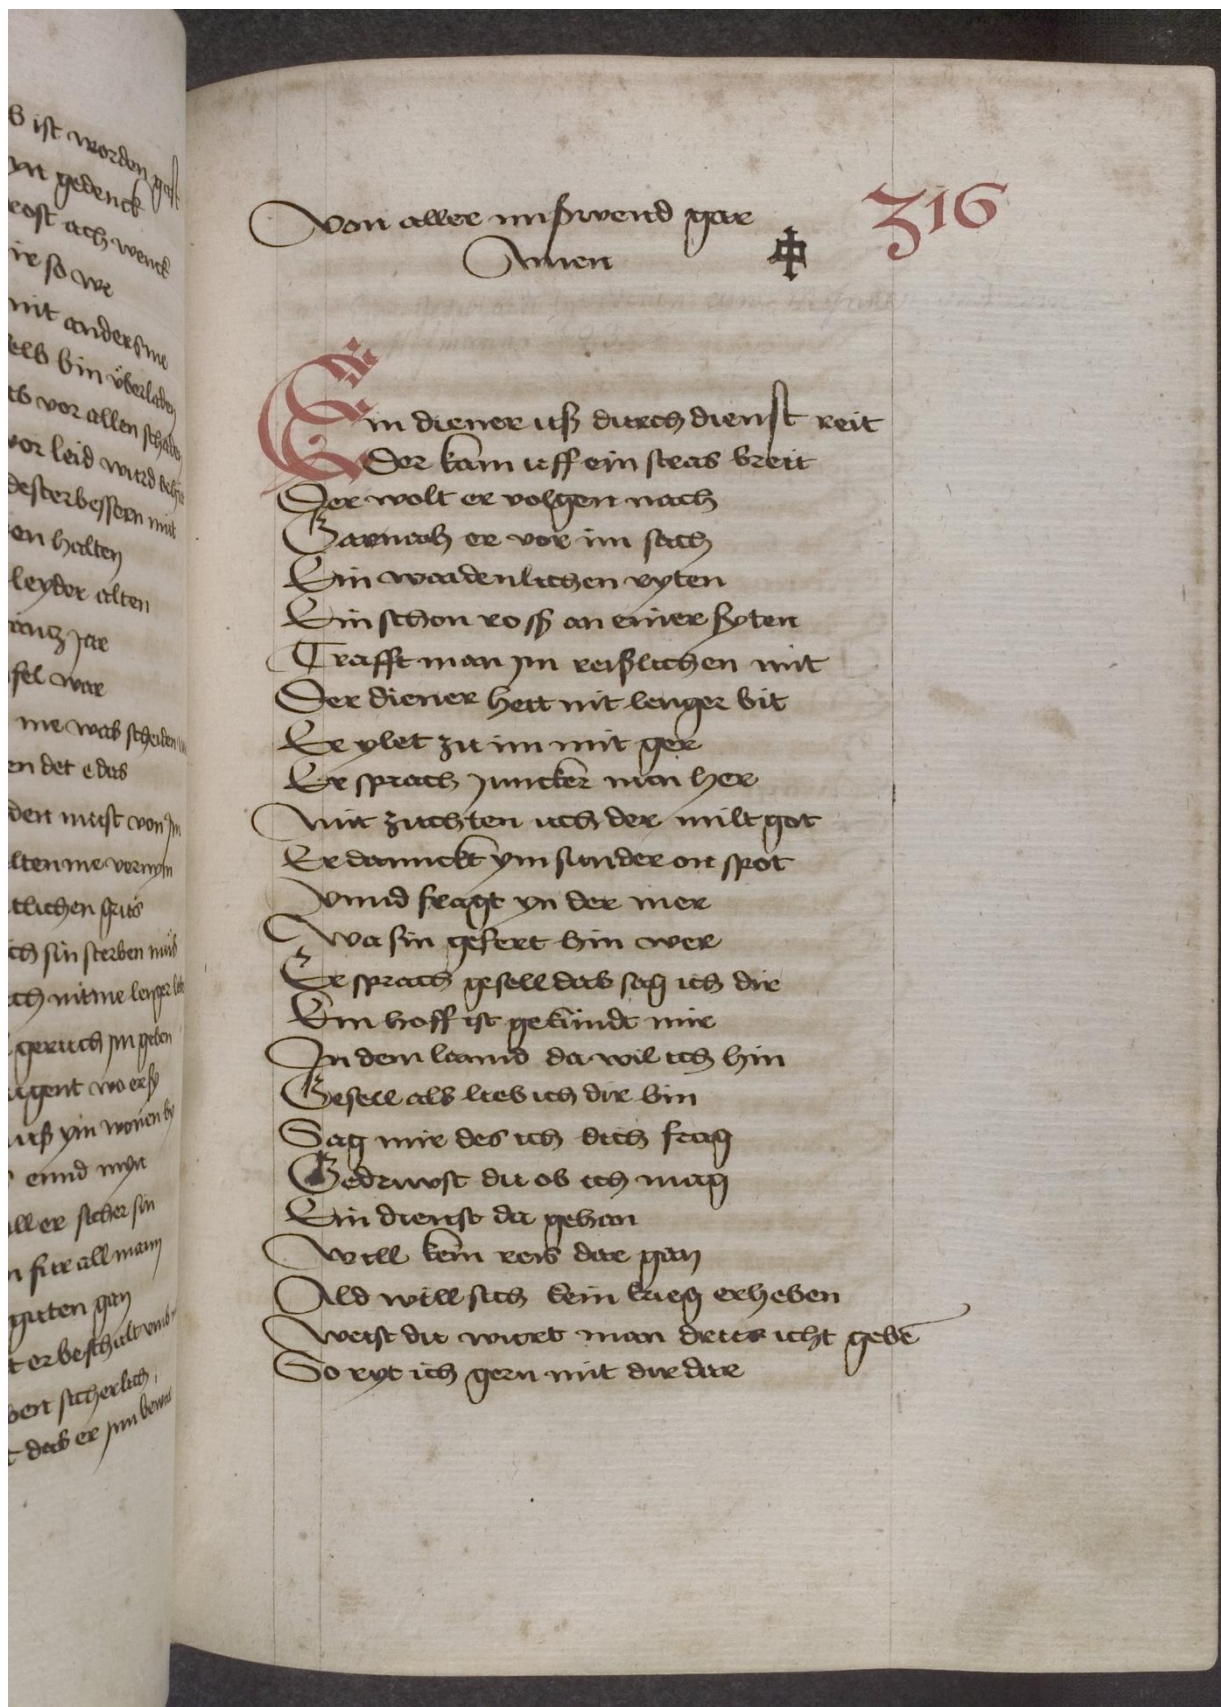 ß ist worden gast
yn gedenck
rost ach wenck
ir so we
nit anders me
selb bin überladen
vor allen schaden
vor leid wurd
dester bessern mut
en halten
leyder alten
gantz jar
fel war
me was scheiden
en det e das
den must von jm
lten me vernym
tlichen grus
ch sin sterben mus
ch nit me lenger leb
geruch jm geben
igent wo er sy
uß ym wonen by
ennd myn
all er sicher sin
n für all man
guten gan
t er beschult
bert sicherlich
t das er jm
Von aller mißwend gar
Amen
316
Ein diener uß durch dienst reit
Der kam uff ein stras breit
Der wolt er volgen nach
Gar nach er vor im sach
Ein waidenlichen ryten
Ein schon roß an einer syten
Trafft man jm reißlichen mit
Der diener hett nit lenger bit
Er ylet zu im mit ger
Er sprach juncker min her
Mit zuchten uch der milt got
Er danckt ym sunder on spot
Vnnd fragt yn der mer
Wa sin gefert hin wer
Er sprach gesell das sag ich dir
Ein hoff ist gekündt mir
In dem lannd da wil ich hin
Gesell als lieb ich dir bin
Sag mir des ich dich frag
Gedruwst du ob ich mag
Ein dienst da gehan
Will kein reis dar gan
Ald will sich kein krieg erheben
Weist du wirt man icht gebē
So ryt ich gern mit dir dar